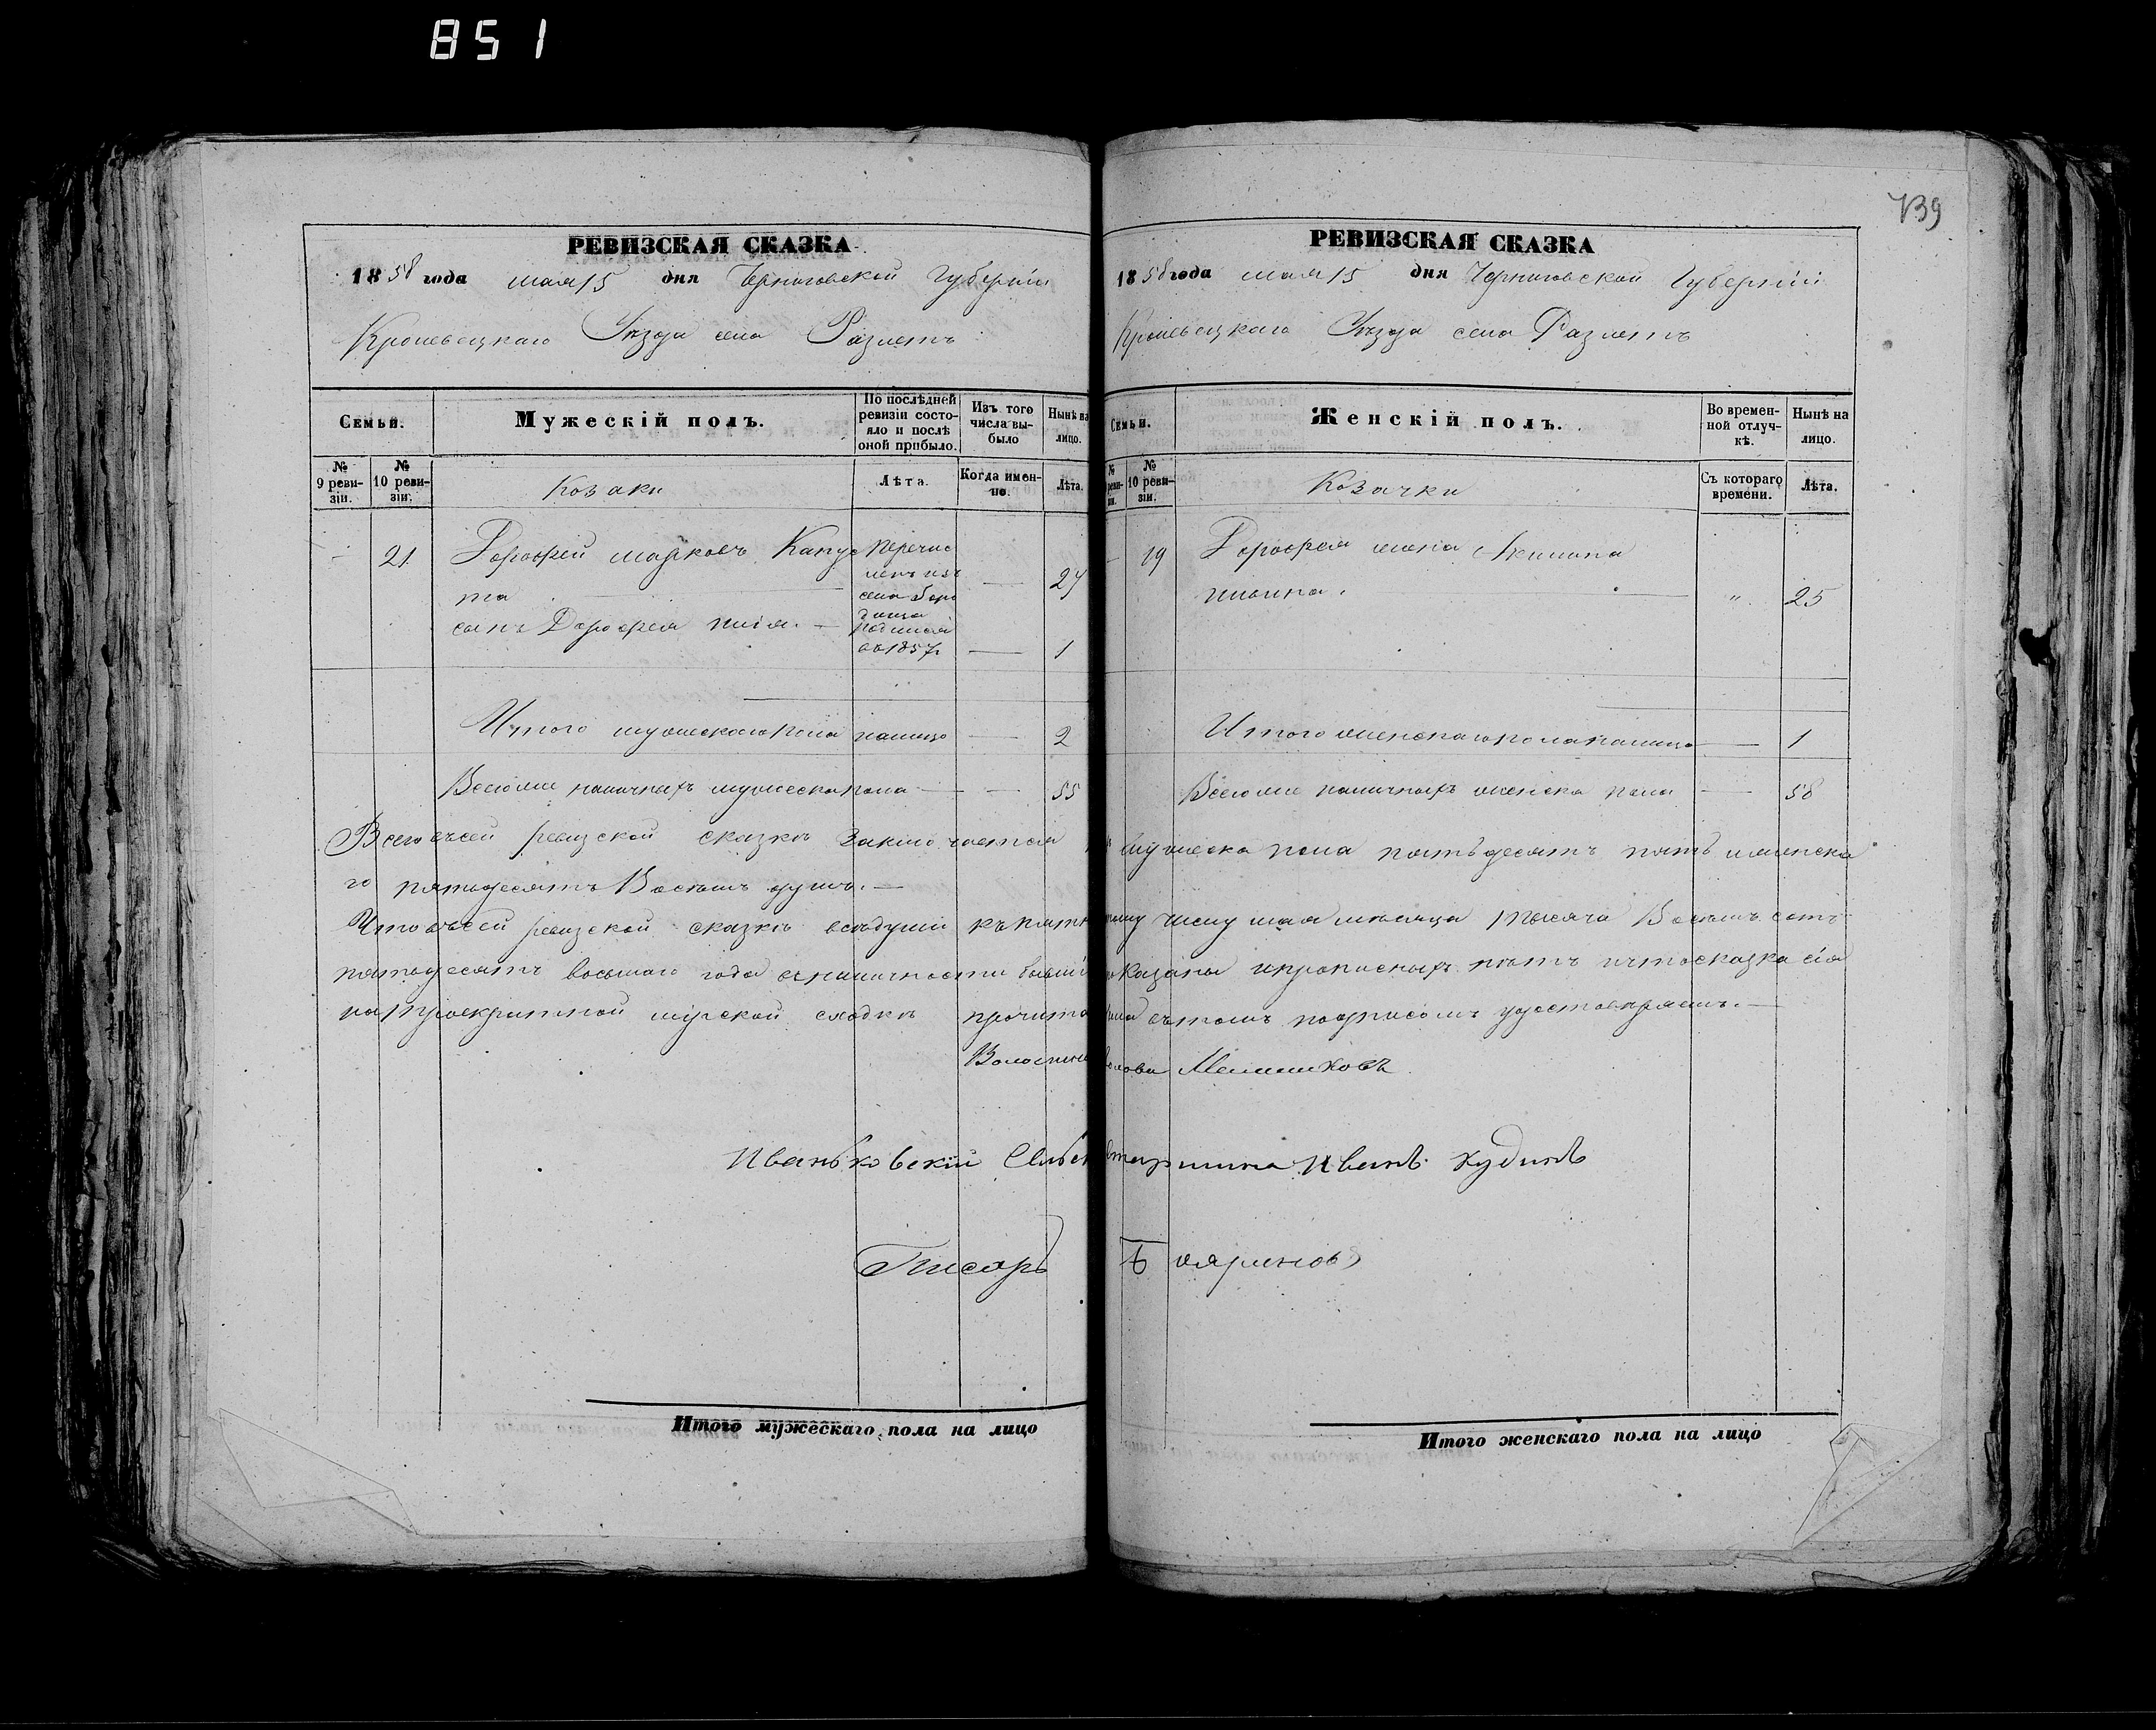 851
739
РЕВИЗСКАЯ СКАЗКА
1858 года мая 15 дня Черниговской Губерніи
Кролевецкаго Уѣзда села Разлетъ
Семьи.
Мужескій полъ.
По послѣдней ревизіи состояло и послѣ оной прибыло.
Изъ того числа выбыло
Нынѣ на лицо.
№ 9 ревизіи.
№ 10 ревизіи.
Козаки
Лѣта.
Когда именно.
Лѣта.
21 Дорофей Марковъ Капус
та
Перечис
ленъ изъ
села
— 27
сынъ Дорофея Илія. —
во 1857 г — 1
Итого мужескаго пола налицо — 2
Всего же наличныхъ мужеска пола — — 55
РЕВИЗСКАЯ СКАЗКА
1858 года мая 15 дня Черниговской Губерніи
Кролевецкаго Уѣзда села Разлетъ
Семьи.
Женскій полъ.
Во временной отлучкѣ.
Нынѣ на лицо.
№ 10 ревизіи.
Козачки
Съ котораго времени.
Лѣта.
19 Дорофея жена Акилина
— " 25
Итого женскаго пола налицо — 1
Всего же наличныхъ женска пола — 58
Всего въ сей ревизской сказкѣ заключается мужеска пола пятьдесятъ пять женска
го пятьдесятъ Восемь душъ. —
Что въ сей ревизской сказкѣ всѣ души къ пятн числу мая мѣсяца тысяча Восемь сотъ
пятьдесятъ восьмаго года въ наличности бывшій показаны и прописныхъ нѣтъ и что сказка сія
на троекратной мірской сходкѣ прочита въ томъ подписомъ удостовѣряемъ. —
Волостный Голова
Иваньковский Сельск Старшина Иванъ Кудинъ
Писарь Бояриновъ
Итого мужескаго пола на лицо
Итого женскаго пола на лицо